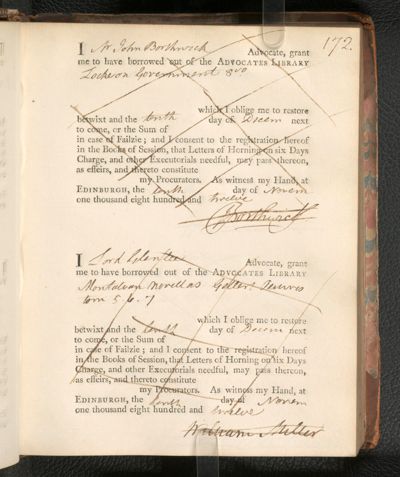 172.
I Mr John Borthwick Advocate, grant
me to have borrowed out of the ADVOCATES LIBRARY
Locke on Government 8vo
which I oblige me to restore
betwixt and the tenth day of Decem next
to come, or the Sum of
in case of Failzie; and I consent to the registration hereof
in the Books of Session, that Letters of Horning on six Days
Charge, and other Executorials needful, may pass thereon,
as effeirs, and thereto constitute
my Procurators. As witness my Hand, at
EDINBURGH, the tenth day of Novem
one thousand eight hundred and twelve
J Borthwick
I Lord Glenlee Advocate, grant
me to have borrowed out of the ADVOCATES LIBRARY
tom 5. 6. 7
which I oblige me to restore
betwixt and the tenth day of Decem next
to come, or the Sum of
in case of Failzie; and I consent to the registration hereof
in the Books of Session, that Letters of Horning on six Days
Charge, and other Executorials needful, may pass thereon,
as effeirs, and thereto constitute
my Procurators. As witness my Hand, at
EDINBURGH, the tenth day of Novem
one thousand eight hundred and twelve
William Miller